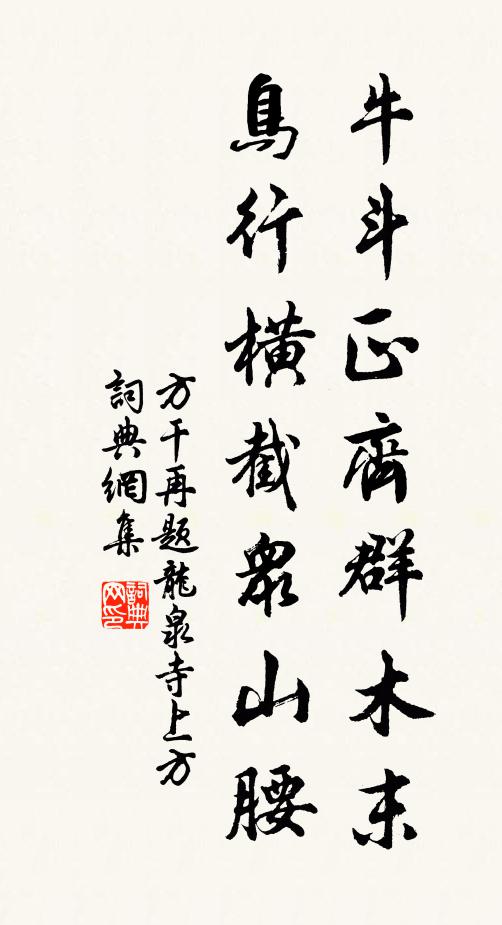 牛斗正齊群木末
鳥行橫截眾山腰
方干再題龍泉寺上方
詞典網集
詞典网印